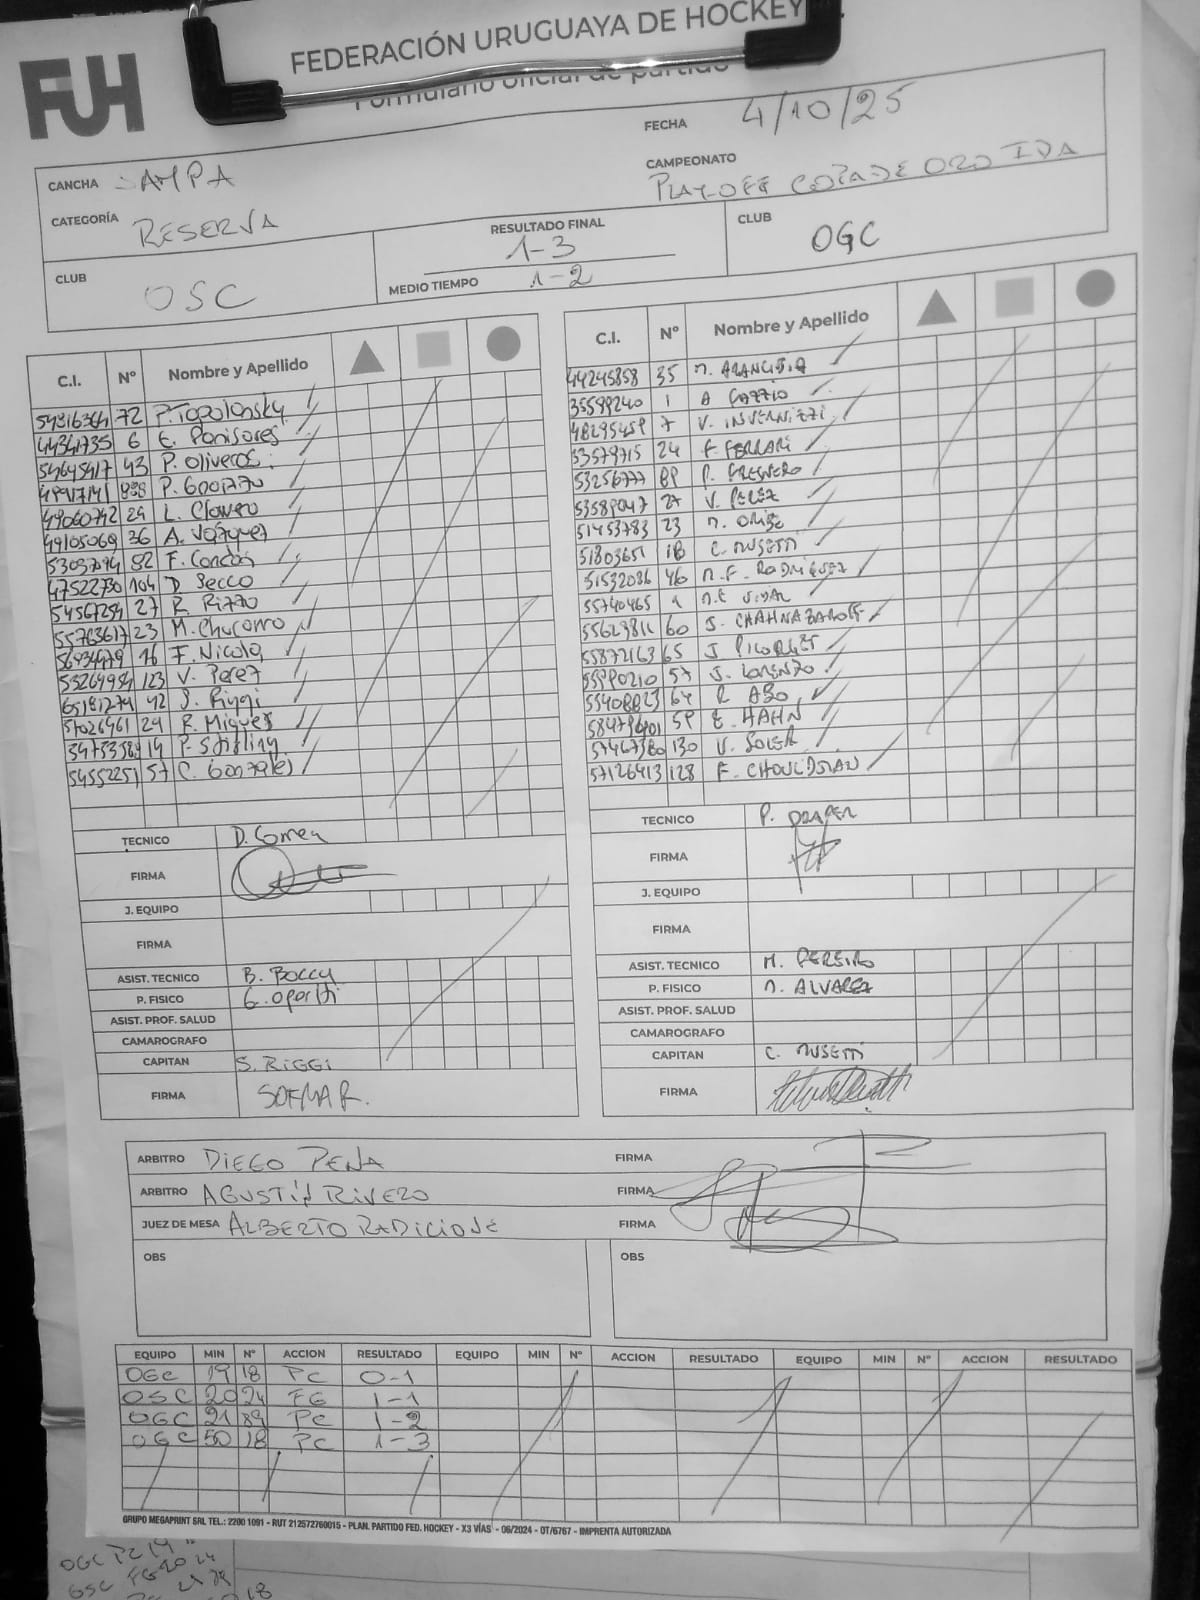 FUH
FEDERACIÓN URUGUAYA DE HOCKEY
Formulario oficial de partido
FECHA 4/10/25
CANCHA SAMPA
CAMPEONATO PLAY-OFF COPA DE ORO IDA
CATEGORÍA RESERVA
CLUB OSC
RESULTADO FINAL 1-3
MEDIO TIEMPO 1-2
CLUB OGC
C.I. Nº Nombre y Apellido
72 P. Topolansky
44341735 6 E. Panisores
43 P. Oliveros
P. Gopizzo
49060742 29 L. Clavero
49105069 36 A. Vázquez
82 F. Condón
47522730 104 D. Secco
54567254 27 R. Rizzo
55763617 23 M. Churorro
16 F. Nicola
53264954 123 V. Perez
65181274 42 S. Riggi
57026961 29 R. Miguez
14 P. Stirling
54552251 57 C. Gonzalez
TECNICO D. Correa
FIRMA
J. EQUIPO
FIRMA
ASIST. TECNICO B. Boccy
P. FISICO
ASIST. PROF. SALUD
CAMAROGRAFO
CAPITAN S. RIGGI
FIRMA SOFMAR.
C.I. Nº Nombre y Apellido
44245858 35 M. ARANCIBIA
35599240 1 A
48295459 7 V. INVERNIZZI
53579715 24 F. FERRARI
53256777 89
53589047 27 V. PEREZ
51453783 23 M. ORIBE
51803651 18 C. MUSETTI
51532086 46 M.F. RODRIGUEZ
55740465 9 M.E VIDAL
55629811 60 S. CHAHNAZAROFF
55872163 65 J PICORNET
55990210 57 J. LORENZO
55408823 64 R ABO
59 E. HAHN
57467380 130 V. SOLER
57126413 128 F. CHOULDJIAN
TECNICO P. DRAPER
FIRMA
J. EQUIPO
FIRMA
ASIST. TECNICO M. PEREIRO
P. FISICO M. ALVAREZ
ASIST. PROF. SALUD
CAMAROGRAFO
CAPITAN C. MUSETTI
FIRMA
ARBITRO DIEGO PEÑA FIRMA
ARBITRO AGUSTÍN RIVERO FIRMA
JUEZ DE MESA ALBERTO RADICIONE FIRMA
OBS OBS
EQUIPO MIN Nº ACCION RESULTADO EQUIPO MIN Nº ACCION RESULTADO EQUIPO MIN Nº ACCION RESULTADO
OGC 19 18 PC 0-1
OSC 20 24 FG 1-1
OGC 21 89 PC 1-2
OGC 50 18 PC 1-3
GRUPO MEGAPRINT SRL TEL.: 2200 1091 - RUT 212572760015 - PLAN. PARTIDO FED. HOCKEY - X3 VÍAS - 06/2024 - OT/6767 - IMPRENTA AUTORIZADA
OGC PC 19
OSC FG 20 24
21 89
18